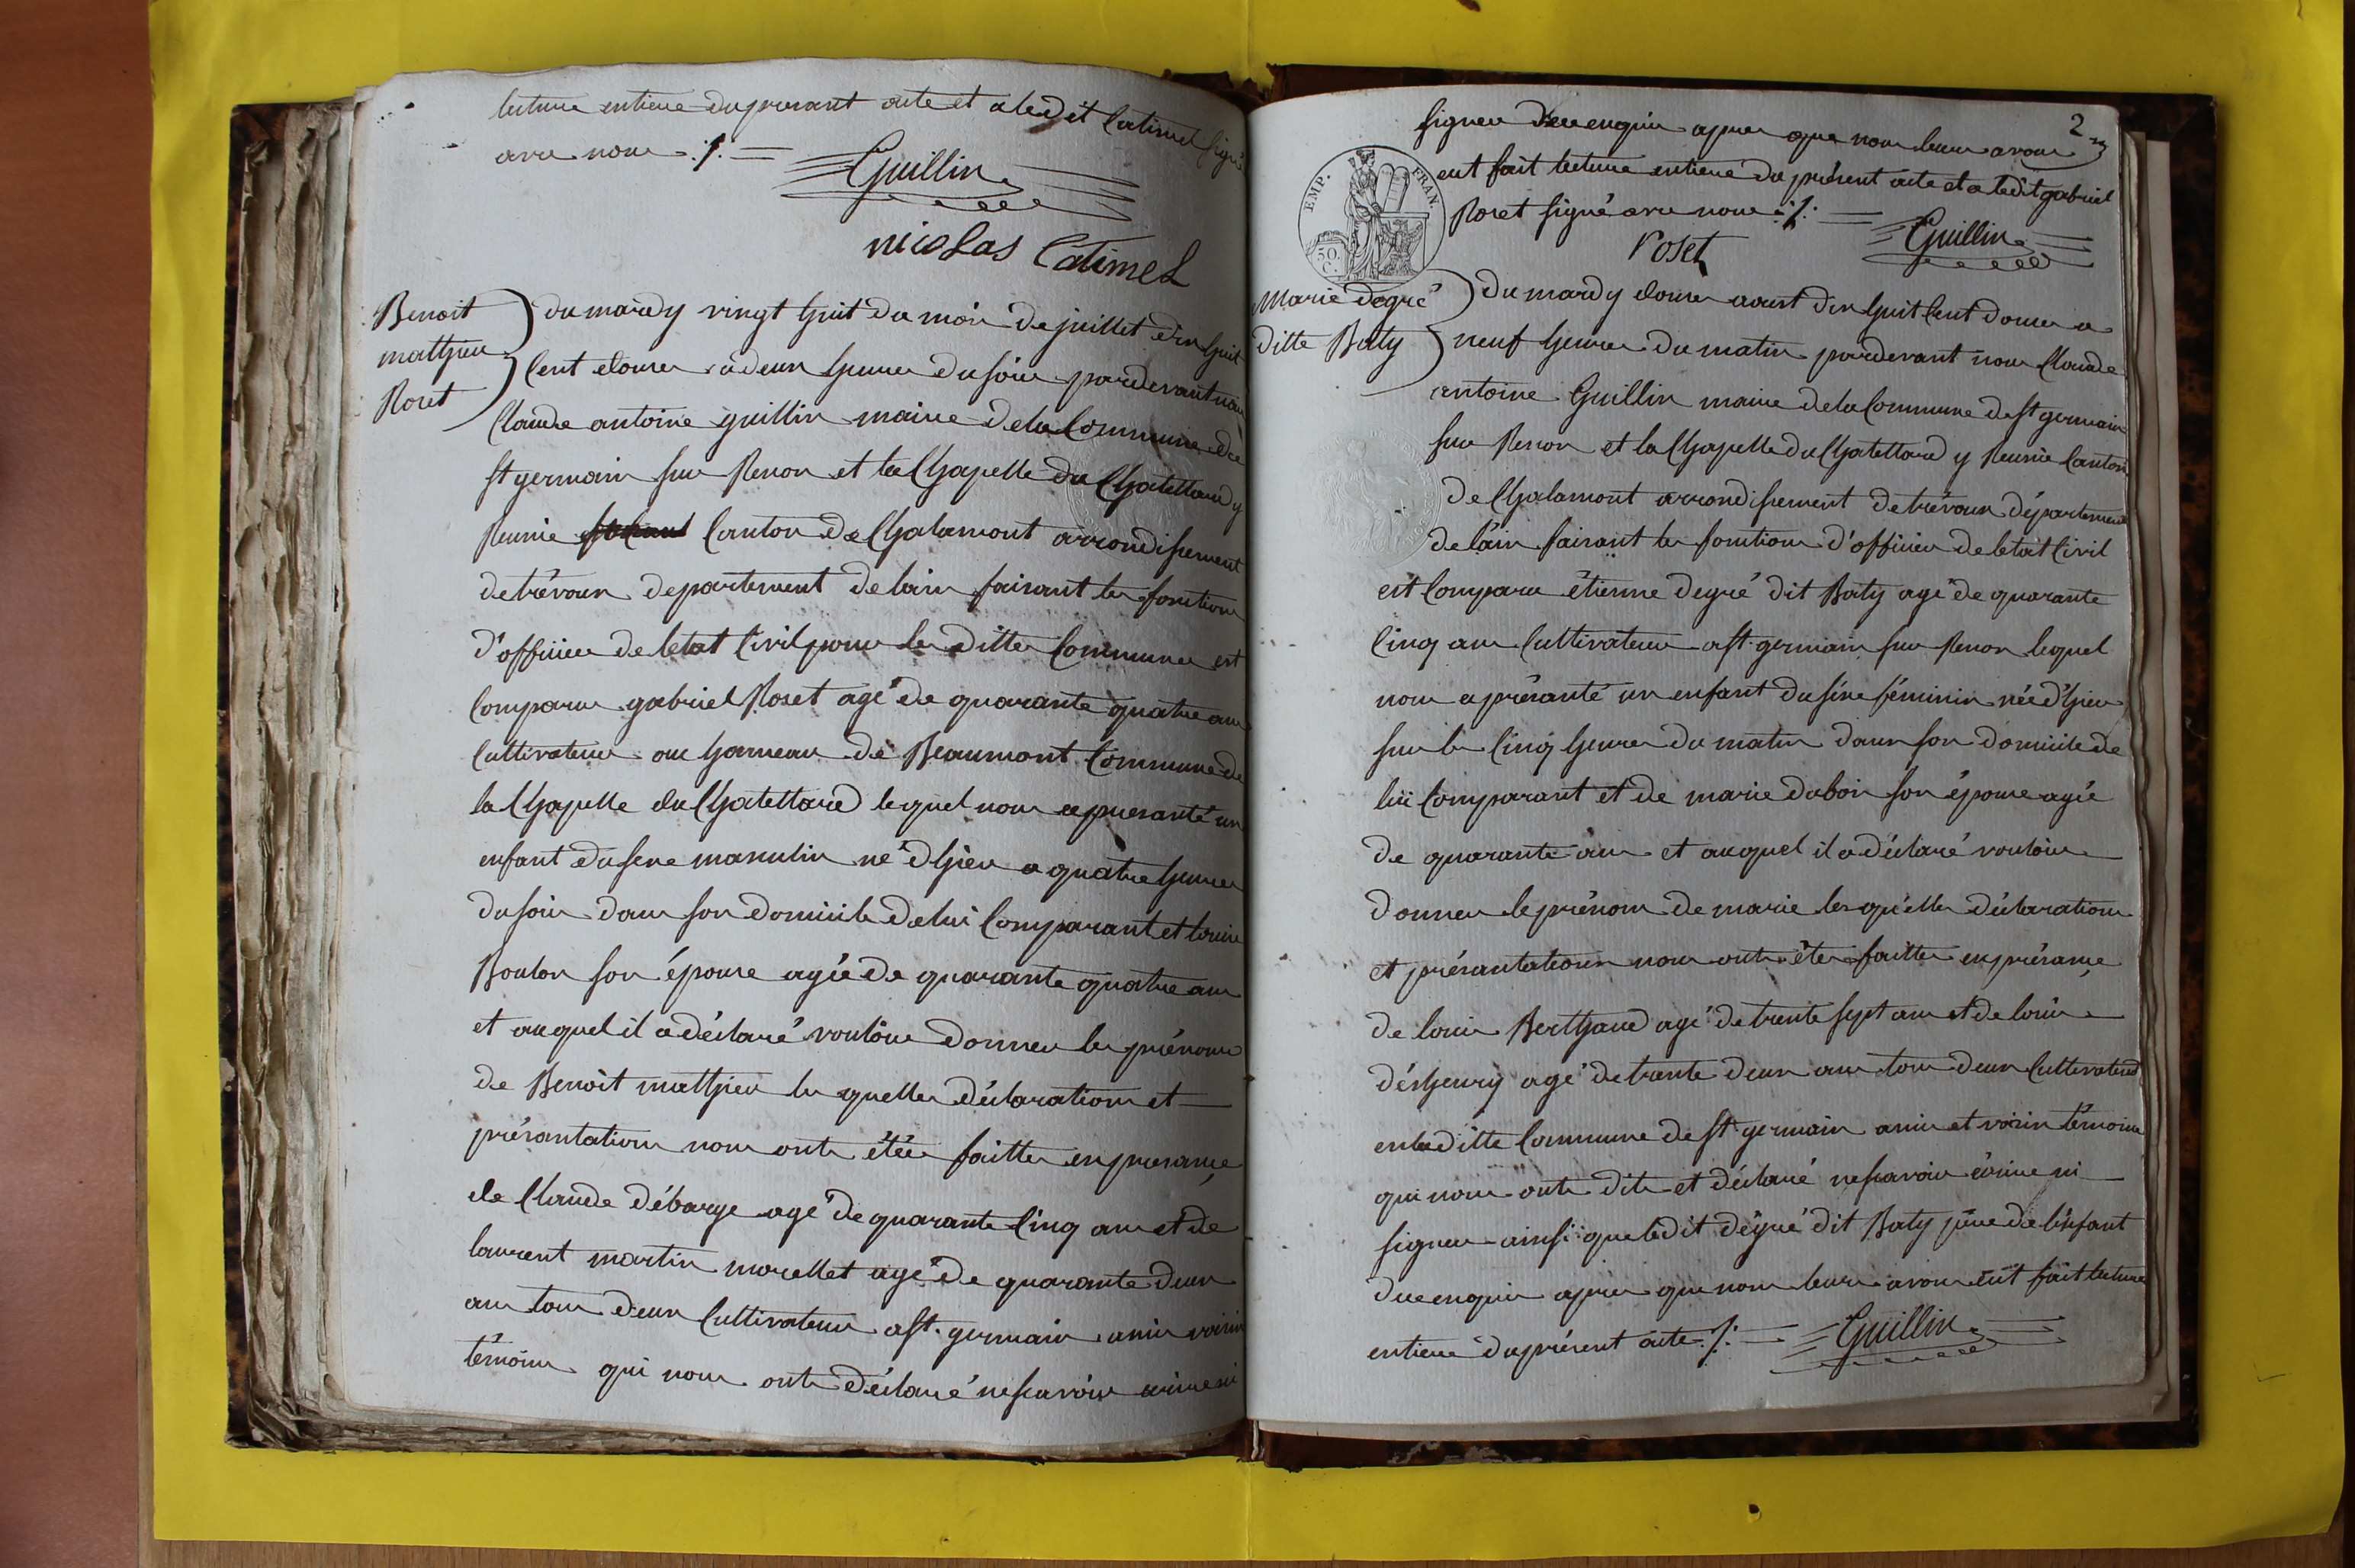 lecture entiere du presant acte et a ledit Catimel signé
avec nous ./. =
Guillin
nicolas Catimel
Benoit
mathieu
Roset
du mardy vingt huit du mois de juillet dix huit
cent douze a deux heures du soir pardevant nous
Claude antoine guillin maire de la Commune de
st germain sur Renon et la Chapelle du Chatellard y
Reunie Canton de Chalamont arrondissement
de trévoux departement de lain faisant les fonctions
d'officier de letat Civil pour les dittes Communes est
Comparus gabriel Roset agé de quarante quatre ans
Cultivateur au hameau de Beaumont Commune de
la Chapelle du Chatellard lequel nous a presanté un
enfant du sexe masculin né d'hier a quatre heures
du soir dans son domicile de lui Comparant et louise
Bouton son épouse agée de quarante quatre ans
et auquel il a déclaré vouloir donner les prénoms
de Benoit mathieu les quelles déclarations et
présantations nous ont étées faittes en presançe
de Claude débarge agé de quarante Cinq ans et de
laurent martin morellet agé de quarante deux
ans tous deux Cultivateurs a st. germain amis voisins
témoins qui nous ont déclaré ne savoir écrire ni
2
signer de ce enquis apres que nous leurs avons
eut fait lecture entiere du présent acte et a ledit gabriel
Roset signé avec nous ./. =
EMP. FRAN.
50. C.
roset
Guillin
Marie degré
ditte Baty
du mardy douze aoust dix huit Cent douze a
neuf heures du matin pardevant nous Claude
antoine Guillin maire de la Commune de st germain
sur Renon et la Chapelle du Chatellard y Reunie Canton
de Chalamont arrondissement de trévoux département
de l'ain faisant les fonctions d'officier de letat Civil
est Comparu étienne degré dit Baty agé de quarante
Cinq ans Cultivateur a st. germain sur Renon lequel
nous a présanté un enfant du séxe féminin née d'hier
sur les Cinq heures du matin dans son domicile de
lui Comparant et de marie dubois son épouse agée
de quarante ans et auquel il a déclaré vouloir
donner le prénom de marie les quelles déclarations
et présantations nous ont étes faittes en présançe
de louis Berthaud agé de trente sept ans et de louis
déshenry agé de trente deux ans tous deux Cultivateurs
en la ditte Commune de st germain amis et voisin témoins
qui nous ont dit et déclaré ne savoir écrire ni
signer ainsi que ledit dégré dit Baty père de l'enfant
de ce enquis apres que nous leurs avons eut fait lecture
entiere du présent acte ./. =
Guillin